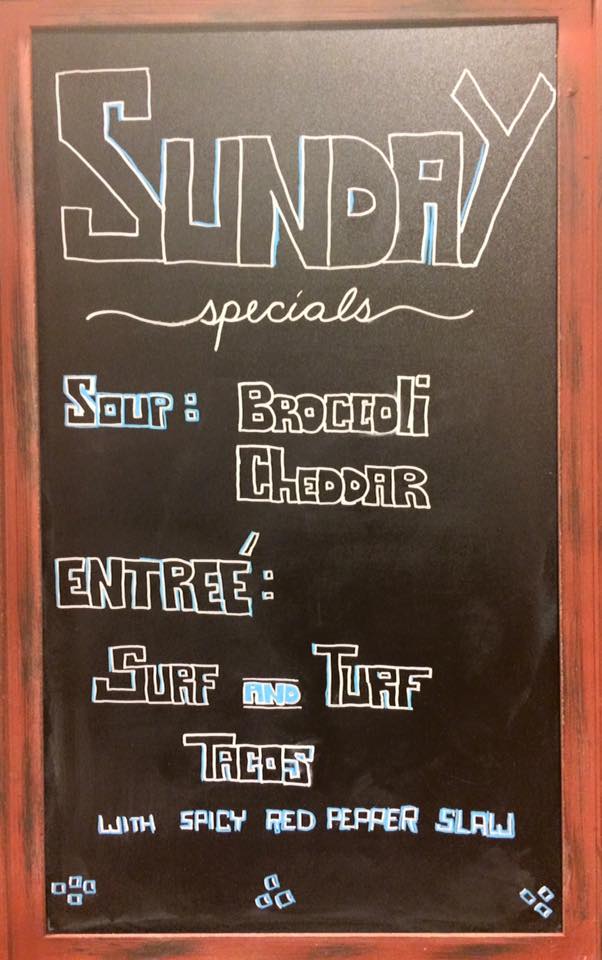 SUNDAY
specials
SOUP: BROCCOLi
CHEDDAR
ENTREÉ:
SURF AND TURF
TACOS
WITH SPICY RED PEPPER SLAW